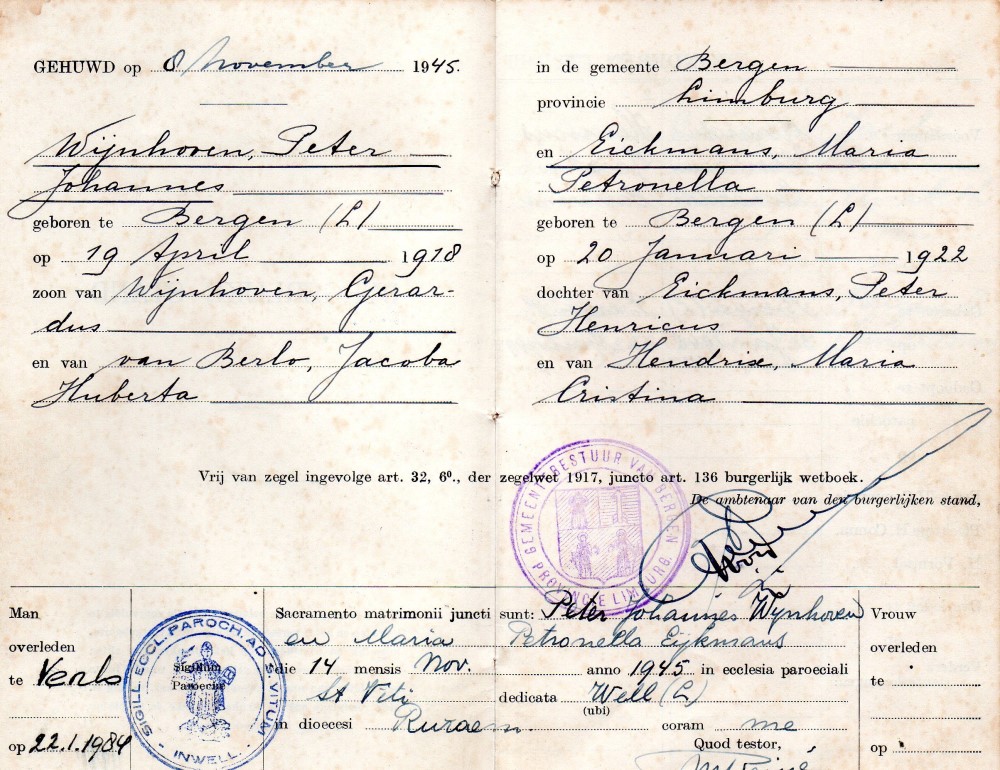 GEHUWD op 8 November 1945.
Wijnhoven, Peter
Johannes
geboren te Bergen (L)
op 19 April 1918
zoon van Wijnhoven, Gerar-
dus
en van van Berlo, Jacoba
Huberta
in de gemeente Bergen
provincie Limburg
en Eickmans, Maria
Petronella
geboren te Bergen (L)
op 20 Januari 1922
dochter van Eickmans, Peter
Henricus
en van Hendrix, Maria
Cristina
Vrij van zegel ingevolge art. 32, 6°., der zegelwet 1917, juncto art. 136 burgerlijk wetboek.
De ambtenaar van den burgerlijken stand,
GEMEENTEBESTUUR VAN BERGEN
PROVINCIE LIMBURG
Man
overleden
te Venlo
op 22.1.1984
SIGILL. ECCL. PAROCH. AD S. VITUM
IN WELL
Sigillum
Paroeciae
Sacramento matrimonii juncti sunt: Peter Johannes Wijnhoven
en Maria Petronella Eijkmans
die 14 mensis Nov. anno 1945 in ecclesia paroeciali
St Viti dedicata Well (L)
(ubi)
in dioecesi Ruraem. coram me
Quod testor,
Vrouw
overleden
te
op